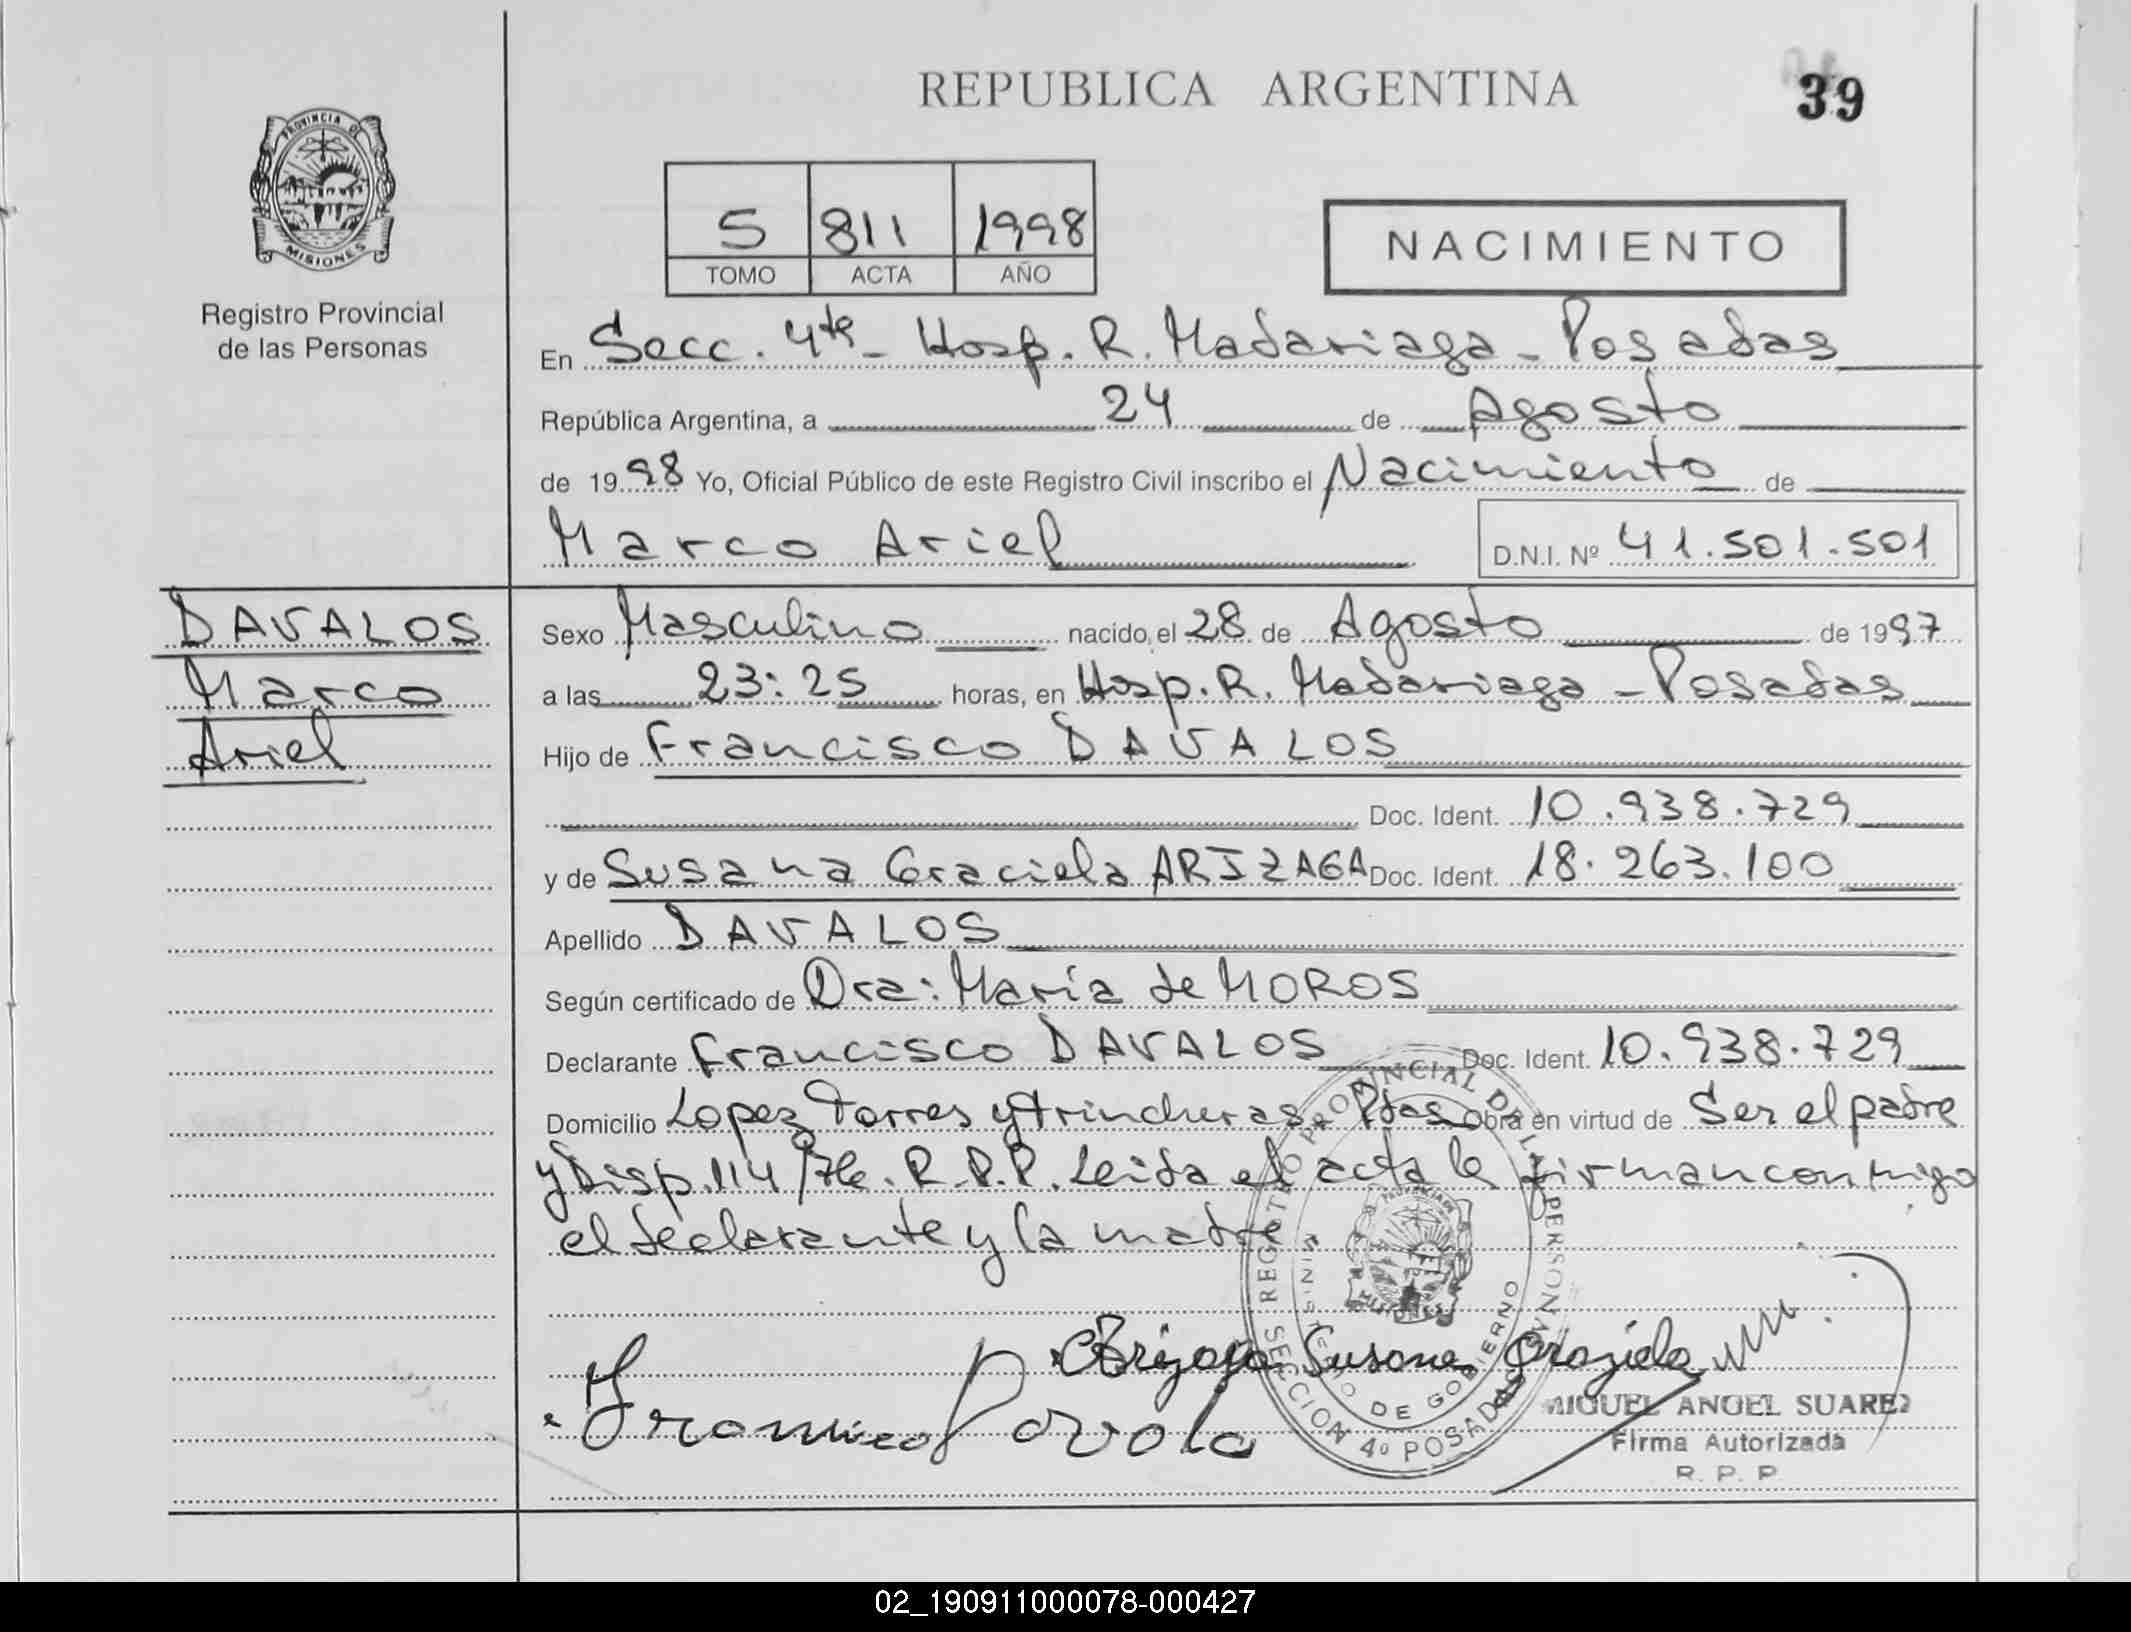 REPUBLICA ARGENTINA
39
PROVINCIA DE
MISIONES
Registro Provincial
de las Personas
5 811 1998
TOMO ACTA AÑO
NACIMIENTO
En Secc. 4ta - Hosp. R. Madariaga - Posadas
República Argentina, a 24 de Agosto
de 1998 Yo, Oficial Público de este Registro Civil inscribo el Nacimiento de
Marco Ariel D.N.I. Nº 41.501.501
DAVALOS
Marco
Ariel
Sexo Masculino nacido, el 28 de Agosto de 1997
a las 23:25 horas, en Hosp. R. Madariaga - Posadas
Hijo de Francisco DAVALOS
Doc. Ident. 10.938.729
y de Susana Graciela ARIZAGA Doc. Ident. 18.263.100
Apellido DAVALOS
Según certificado de Dra: María de MOROS
Declarante Francisco DAVALOS Doc. Ident. 10.938.729
Domicilio Lopez Torres y Trincheras Pdas Obra en virtud de Ser el padre
y Disp. 114/76. R.P.P. Leida el acta la firman conmigo
el declarante y la madre
REGISTRO PROVINCIAL DE LAS PERSONAS
MINISTERIO DE GOBIERNO
SECCION 4º POSADAS
MISIONES
Arizaga Susana Graziela
Francisco Davalo
MIGUEL ANGEL SUAREZ
Firma Autorizada
R. P. P.
02_190911000078-000427